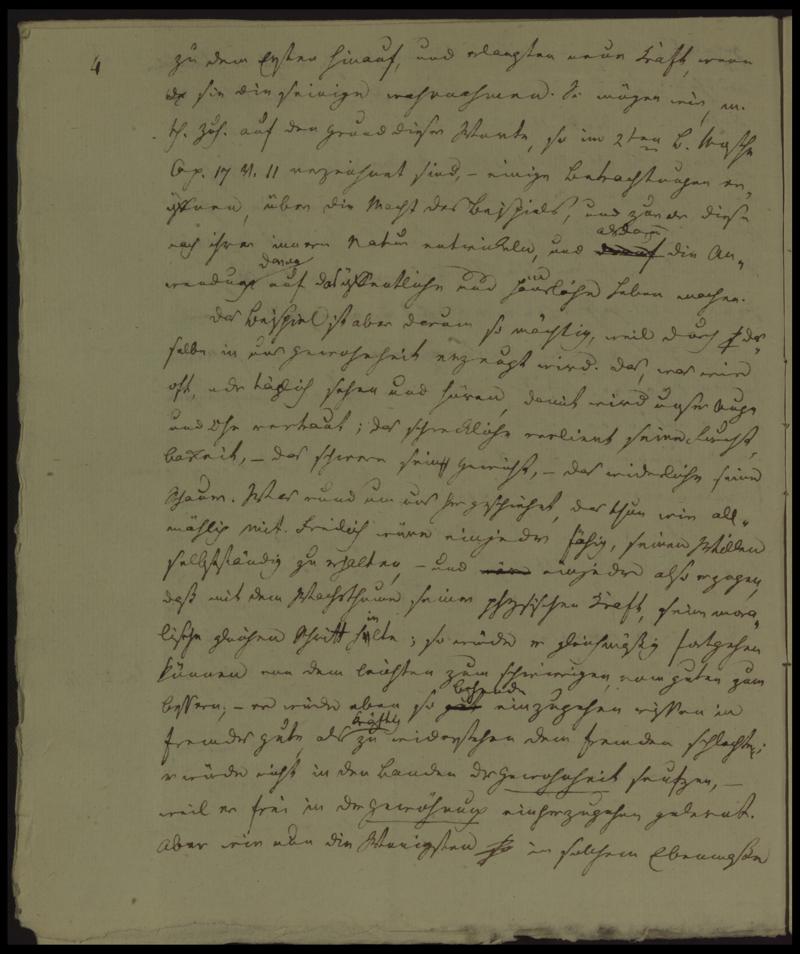 4
zu dem Ersten hinauf, und erlangten neue Kraft, wenn
sie die seinige wahrnahmen. So mögen wir, m.
th. Zuh. auf den Grund dieser Worte, so im 2ten B. Mosche
Cap. 17 V. 11 verzeichnet sind, – einige Betrachtungen er„
öffnen, über die Macht des Beispiels, und zwar diese
nach ihrer innern Natur entwickeln, und alsdann die An„
wendung davon auf das öffentliche und häusliche Leben machen.
Das Beispiel ist aber darum so mächtig, weil durch das„
selbe in uns Gewohnheit erzeugt wird. Das, was wir
oft, oder täglich sehen und hören, damit wird unser Auge
und Ohr vertraut; das schreckliche verliert seine Furcht„
barkeit, – das schwere sein Gewicht, – das widerliche seine
Schauer. Was rund um uns her geschiehet, das thun wir all„
mählig mit. Freilich wäre ein jeder fähig, seinen Willen
selbstständig zu erhalten, – und ein jeder also erzogen,
daß mit dem Wachsthume seiner physischen Kraft, seine mora„
lische gleichen Schritt hielte; so würde er gleichmäßig fortgehen
können von dem leichten zum schwierigen, vom guten zum
bessern; – er würde eben so behende einzugehen wissen in
fremdes gute, als kräftig zu widerstehen dem fremden schlechten;
er würde nicht in den Banden der Gewohnheit seufzen, –
weil er frei in der Gewöhnung einherzugehen gelernt.
Aber wie nun die Wenigsten in solchem Ebenmaße